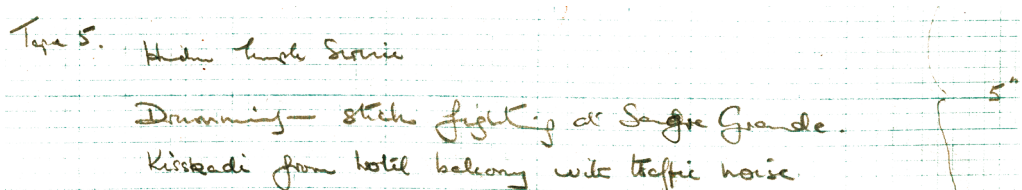 Tape 5. Hindu temple Service
5"
Drumming - stick fighting at Sangre Grande.
Kisskadi from hotel balcony with traffic noise